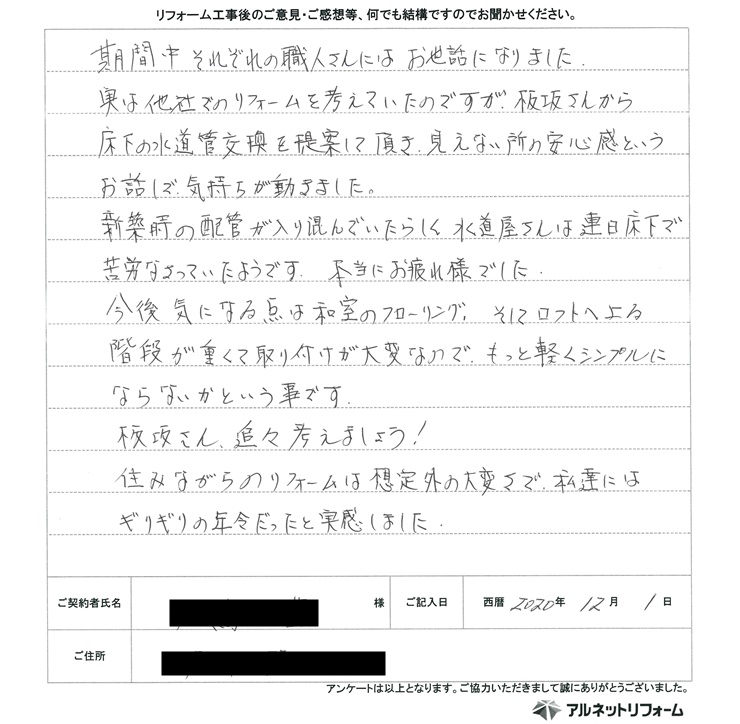 リフォーム工事後のご意見・ご感想等、何でも結構ですのでお聞かせください。
期間中 それぞれの職人さんには お世話になりました.
実は他社でのリフォームを考えていたのですが、板坂さんから
床下の水道管交換を提案して頂き、見えない所の安心感という
お話しで、気持ちが動きました。
新築時の配管が入り混んでいたらしく 水道屋さんは連日床下で
苦労なさっていたようです. 本当にお疲れ様でした.
今後 気になる点は 和室のフローリング、 そしてロフトへ上る
階段が重くて取り付けが大変なので、もっと軽くシンプルに
ならないかという事です.
板坂さん、追々考えましょう!
住みながらのリフォームは想定外の大変さで、私達には
ギリギリの年令だったと実感しました.
ご契約者氏名 様 ご記入日 西暦 2020年 12月 1日
ご住所
アンケートは以上となります。ご協力いただきまして誠にありがとうございました。
アルネットリフォーム